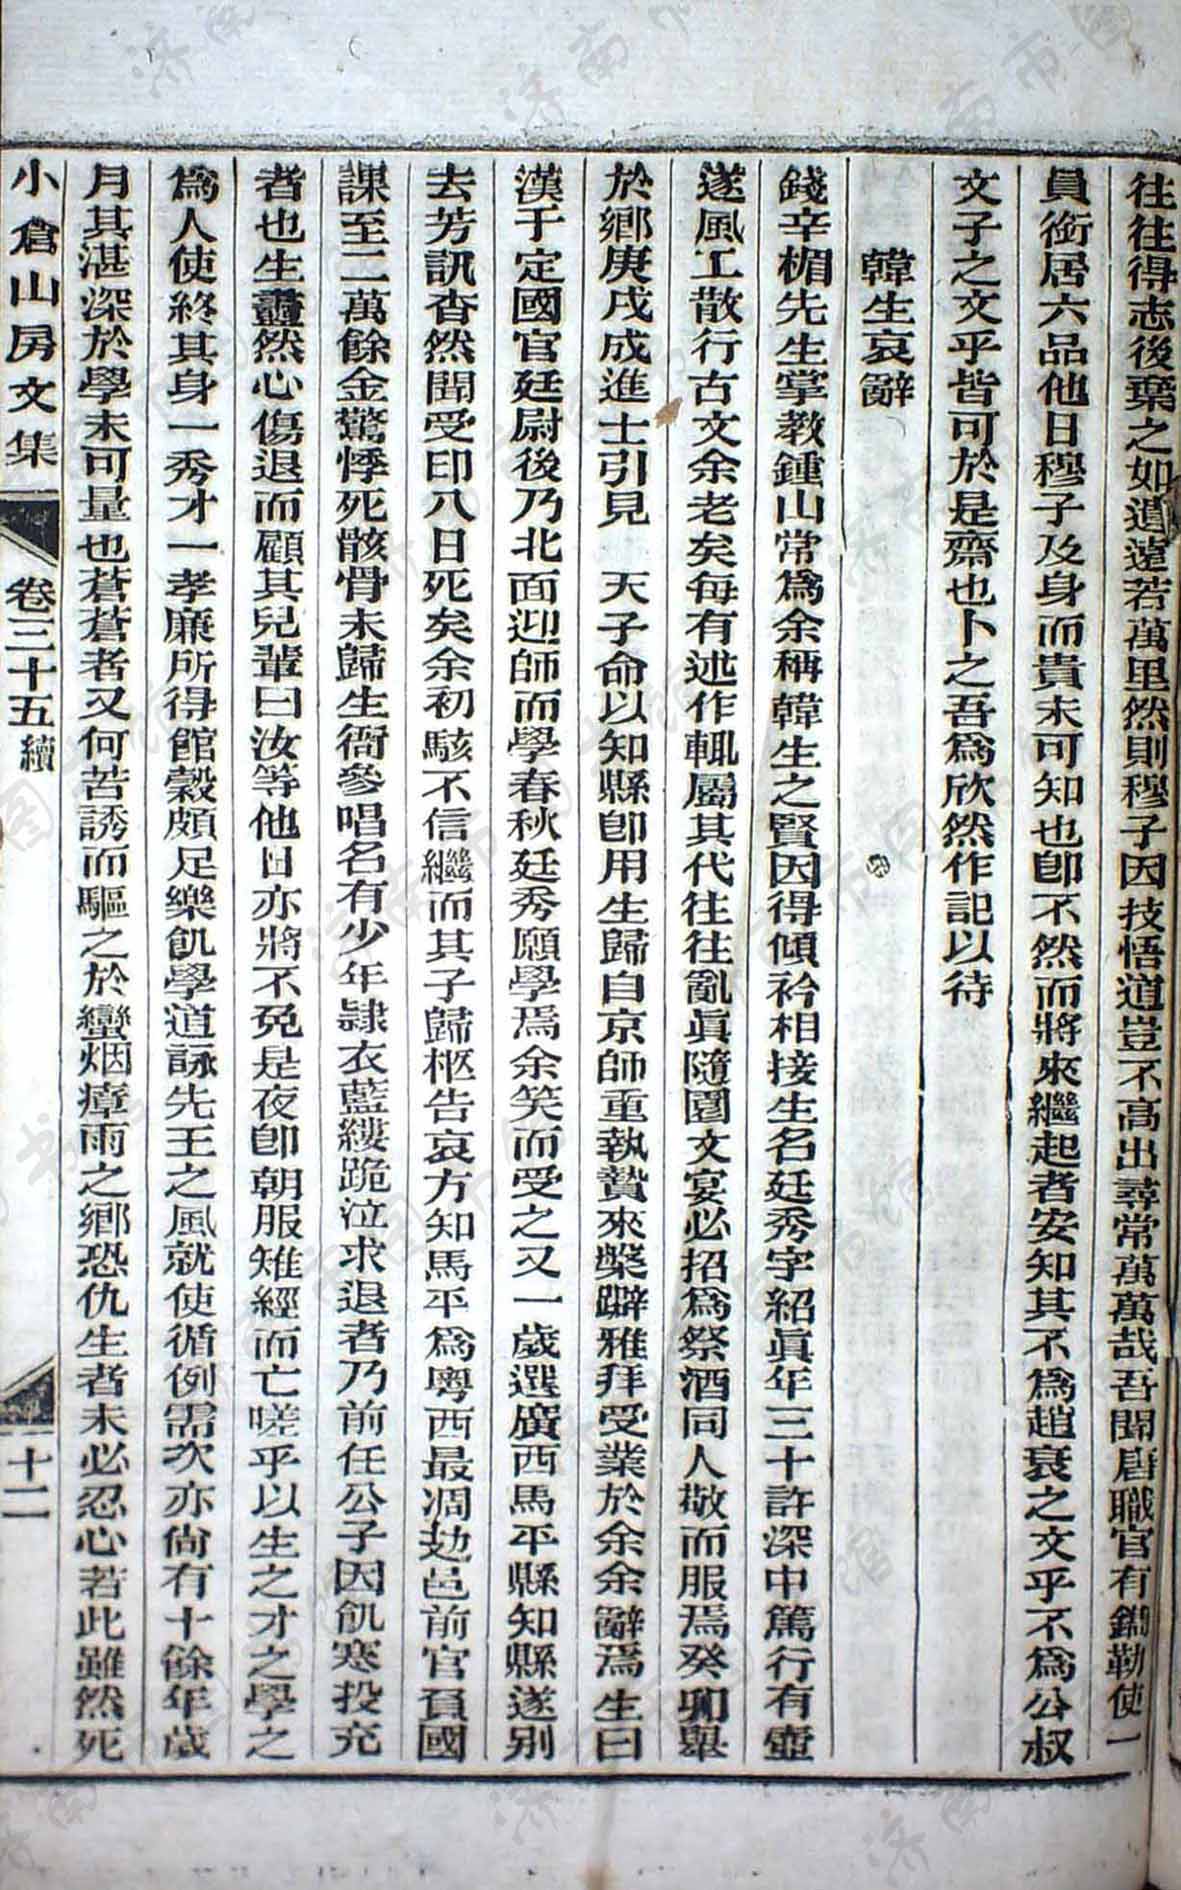 往往得志後棄之如遺遠若萬里然則穆子因技悟道豈不高出尋常萬萬哉吾聞唐職官有鐫勒使一
員銜居六品他日穆子及身而貴未可知也卽不然而將來繼起者安知其不爲趙衰之文乎不爲公叔
文子之文乎皆可於是齋也卜之吾爲欣然作記以待
韓生哀辭
錢辛楣先生掌教鍾山常爲余稱韓生之賢因得傾衿相接生名廷秀字紹眞年三十許深中篤行有壺
遂風工散行古文余老矣每有述作輒屬其代往往亂眞隨園文宴必招爲祭酒同人敬而服焉癸卯舉
於鄉庚戌成進士引見　天子命以知縣卽用生歸自京師重執贄來槃辟雅拜受業於余余辭焉生曰
漢于定國官廷尉後乃北面迎師而學春秋廷秀願學焉余笑而受之又一歲選廣西馬平縣知縣遂別
去芳訊杳然聞受印八日死矣余初駭不信繼而其子歸柩告哀方知馬平爲粵西最凋劫邑前官負國
課至二萬餘金驚悸死骸骨未歸生衙參唱名有少年隸衣藍縷跪泣求退者乃前任公子因飢寒投充
者也生衋然心傷退而顧其兒輩曰汝等他日亦將不免是夜卽朝服雉經而亡嗟乎以生之才之學之
爲人使終其身一秀才一孝廉所得館穀頗足樂飢學道詠先王之風就使循例需次亦尙有十餘年歲
月其湛深於學未可量也蒼蒼者又何苦誘而驅之於蠻烟瘴雨之鄉恐仇生者未必忍心若此雖然死
小倉山房文集　卷三十五續　十二